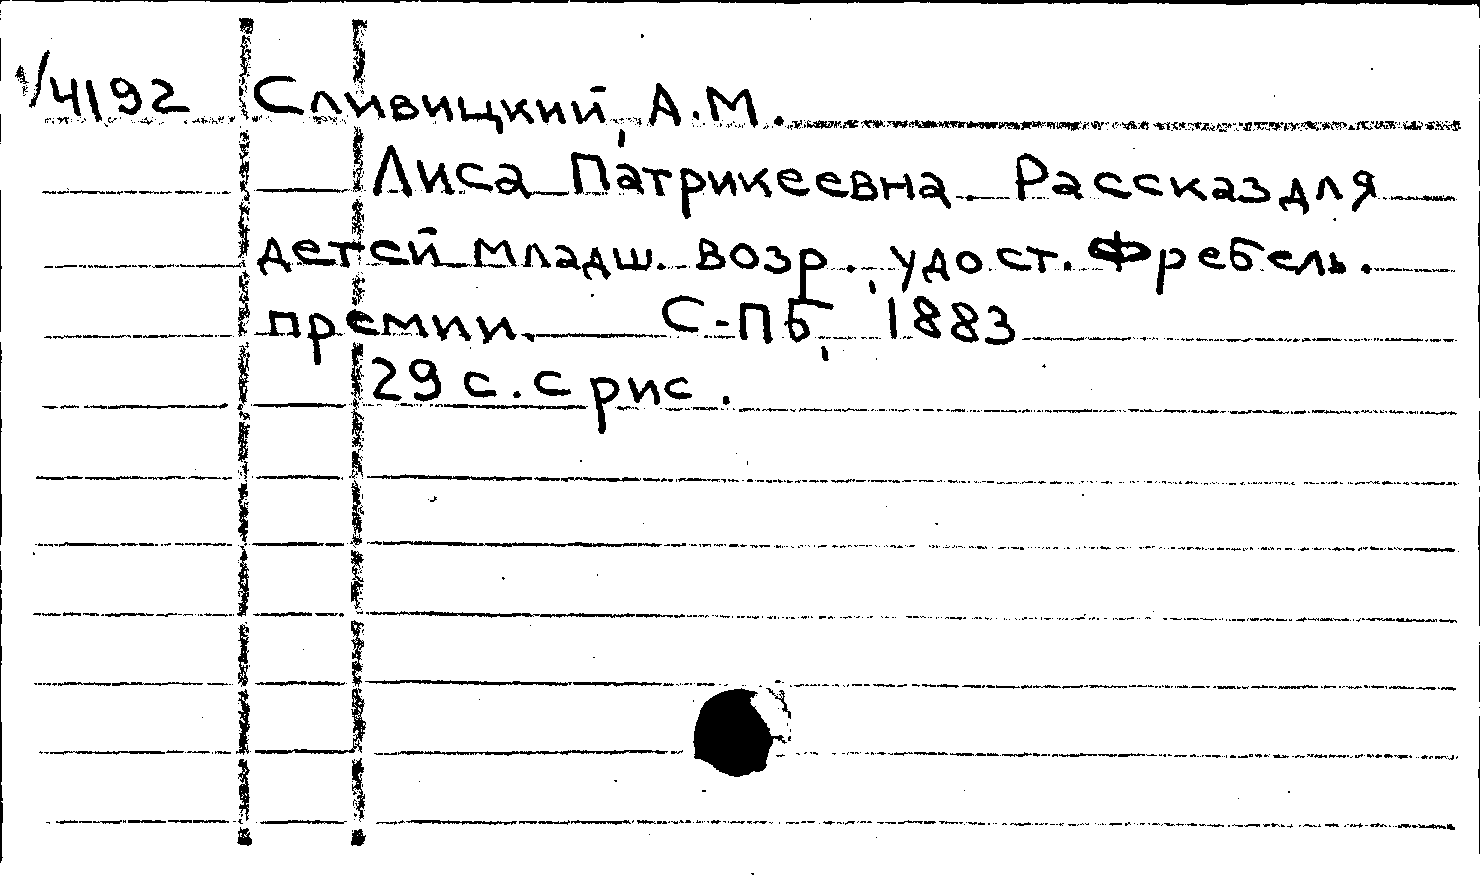 1/4192 Сливицкий, А.М.
Лиса Патрикеевна. Рассказ для
детей младш. возр., удост. Фребель.
премии. С-ПБ, 1883
29 с. с рис.